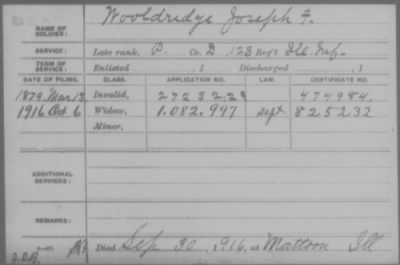 NAME OF SOLDIER: Wooldridge Joseph F.
SERVICE: Late rank, P. Co. D, 123 Reg't Ill. Inf.
TERM OF SERVICE: Enlisted , 1 Discharged , 1
DATE OF FILING. CLASS. APPLICATION NO. LAW CERTIFICATE NO.
1879. Mar 13 Invalid, 272322 474984.
1916 Oct 6 Widow, 1.082.997 Sept 825232
Minor,
ADDITIONAL SERVICES:
REMARKS:
Died Sep 30, 1916, at Mattoon Ill